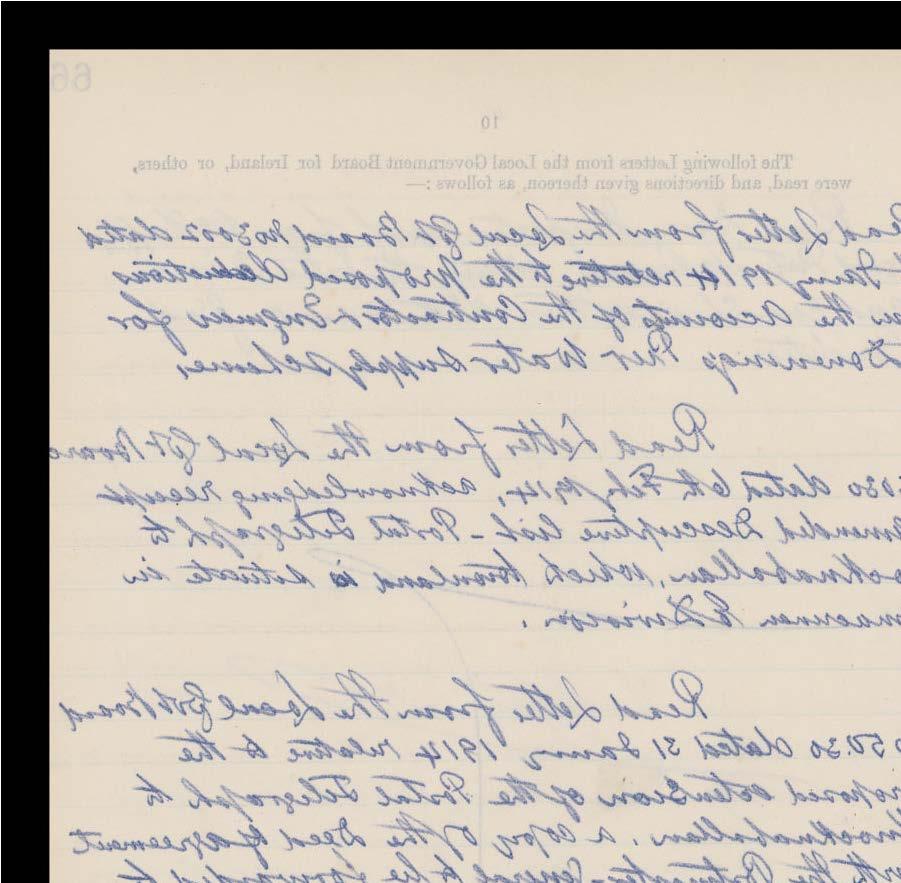 66
10
The following Letters from the Local Government Board for Ireland, or others,
were read, and directions given thereon, as follows :—
Letter from the Local Gt Board No 3002 dated
Jany 1914 relative to the proposed deductions
the Accounts of the Contractor & Engineer for
Water Supply Scheme
Read Letter from the Local Gt Board
dated 6th Feby 1914, acknowledging receipt
Descriptive list - Postal Telegraph to
which townland is situate in
E Division.
Read Letter from the Local Gt Board
dated 31 Jany 1914 relative to the
extension of the Postal Telegraph to
a copy of the Deed of Agreement
the Postmaster-General to be forwarded to